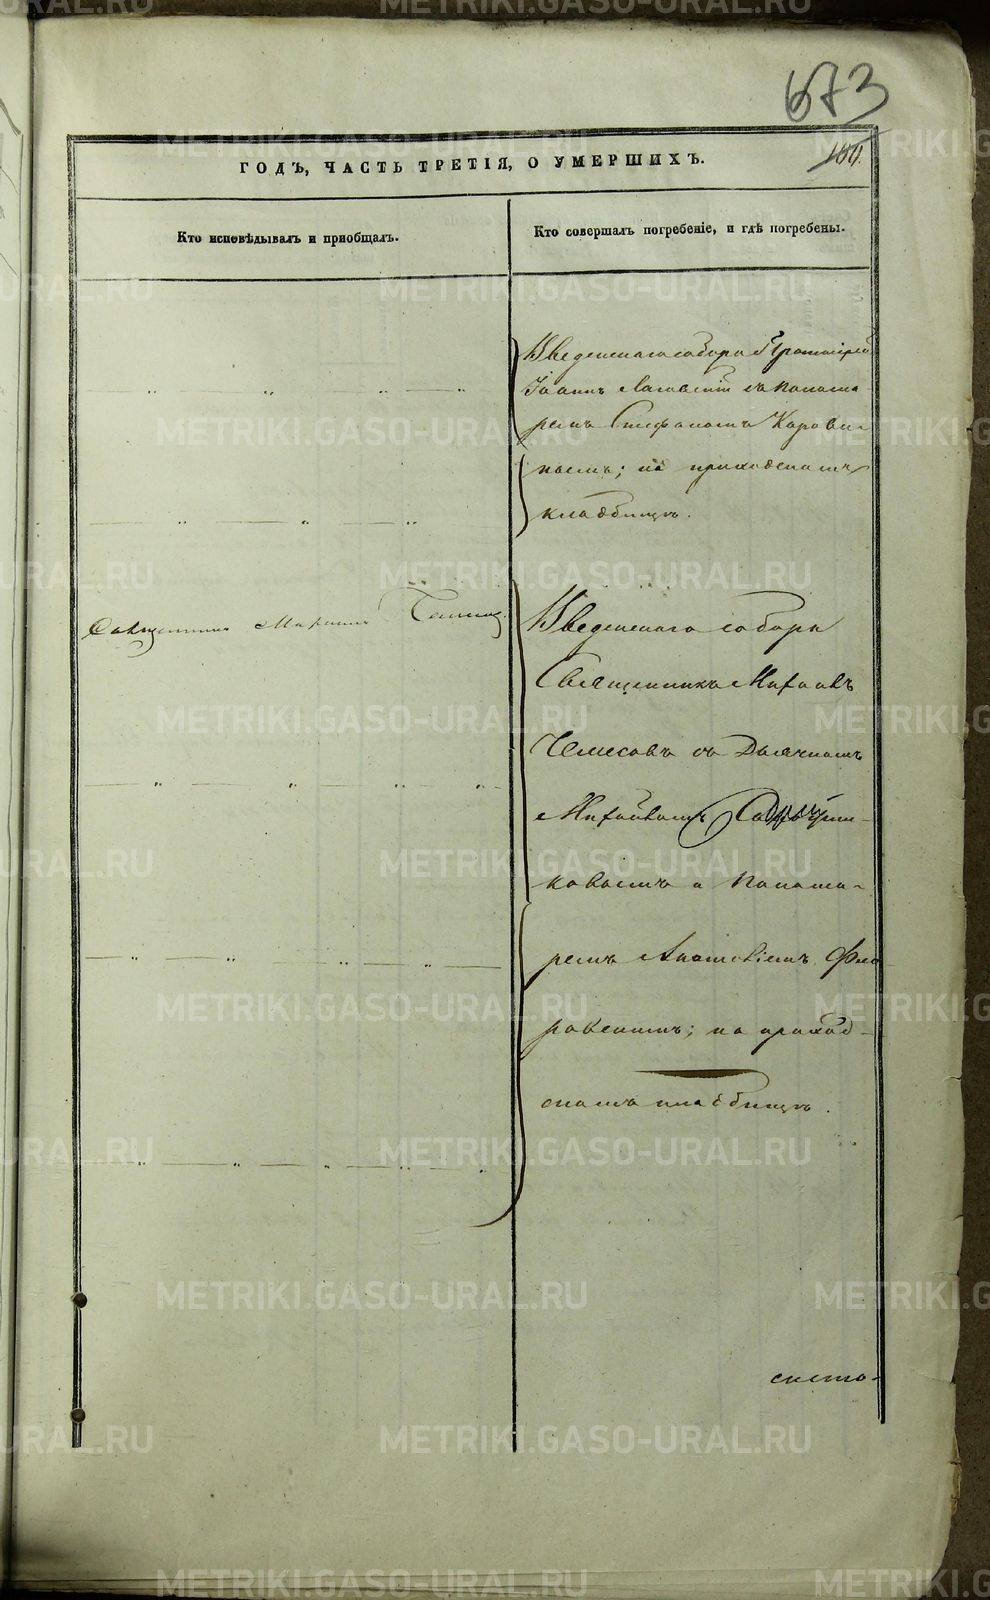 673
104.
ГОДЪ, ЧАСТЬ ТРЕТІЯ, О УМЕРШИХЪ.
Кто исповѣдывалъ и пріобщалъ.
Кто совершалъ погребеніе, и гдѣ погребены.
Введенскаго собора Протоіерей
Іоаннъ съ Понома-
ремъ Стефаномъ Корови-
нымъ; на приходскомъ
кладбищѣ.
Священникъ
Введенскаго собора
Священникъ Михаилъ
Чемесовъ съ Дьячкомъ
Михайломъ
ковымъ и Понома-
ремъ Анатоліемъ Фло-
ровскимъ; на приход-
скомъ кладбищѣ.
METRIKI.GASO-URAL.RU